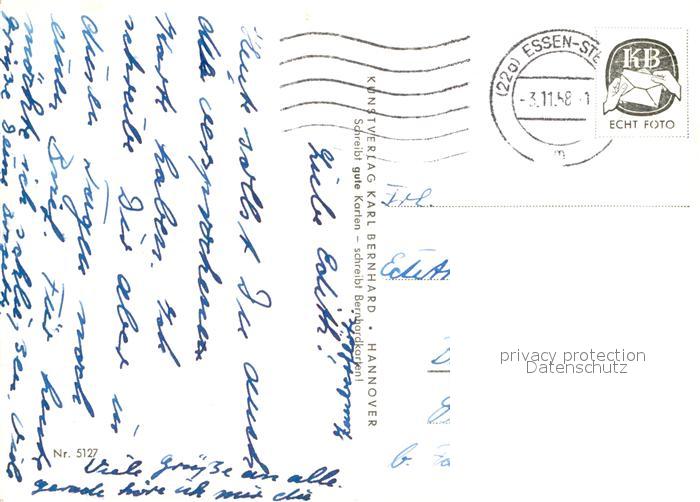 Liebe Edith!
Heute sollst Du auch
die versprochene
Karte haben. Ich
schreibe Dir aber in
diesen Tagen noch
einen Brief. Für heute
möchte ich schließen. Viele
Grüße
Viele Grüße an alle.
gerade höre ich mir die
Nr. 5127
KUNSTVERLAG KARL BERNHARD • HANNOVER
Schreibt gute Karten – schreibt Bernhardkarten!
(22a) ESSEN-STE
-3.11.58-1
m
KB
ECHT FOTO
Frl.
Edith
privacy protection
Datenschutz